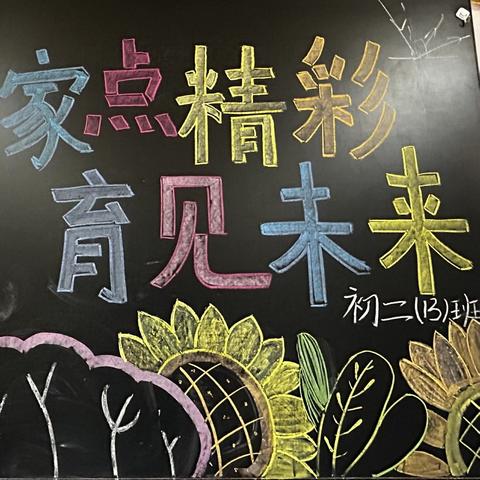 家点精彩
育见未来
初二(13)班